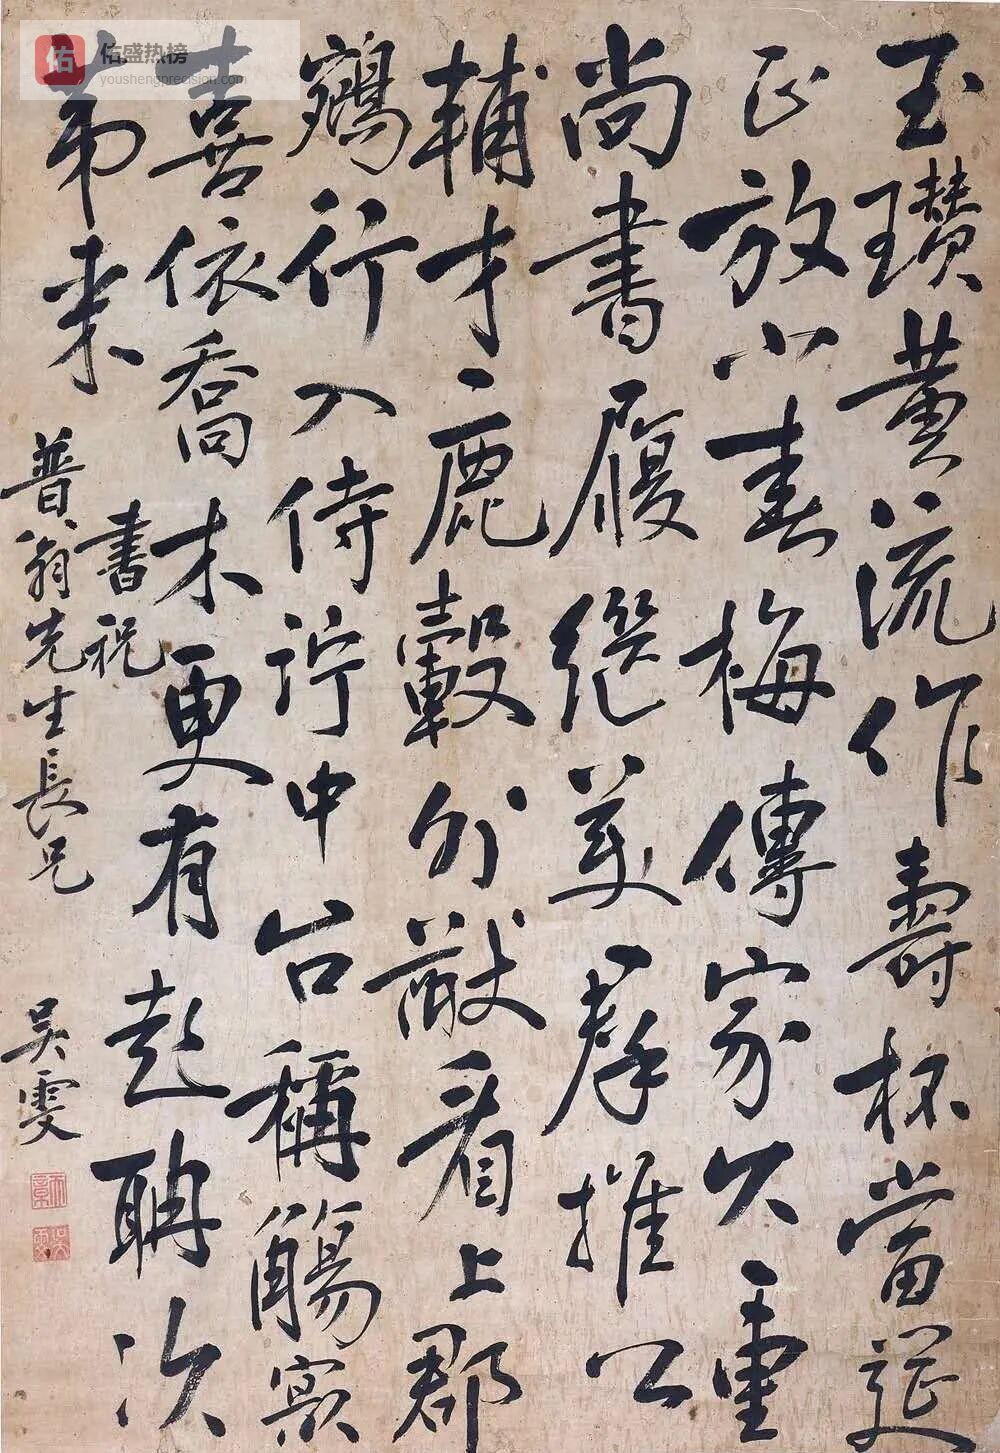 佑盛热榜
youshengprecision.com
玉瓚黃流作壽杯當筵
正放小春梅傳家久重
尚書履絕美羣推公
輔才鹿轂外猷看上郡
鵷行入侍佇中台稱觴㝡
喜依喬木更有彭聃次
弟來
書祝
普翁先生長兄
吳雯
天章
吳雯